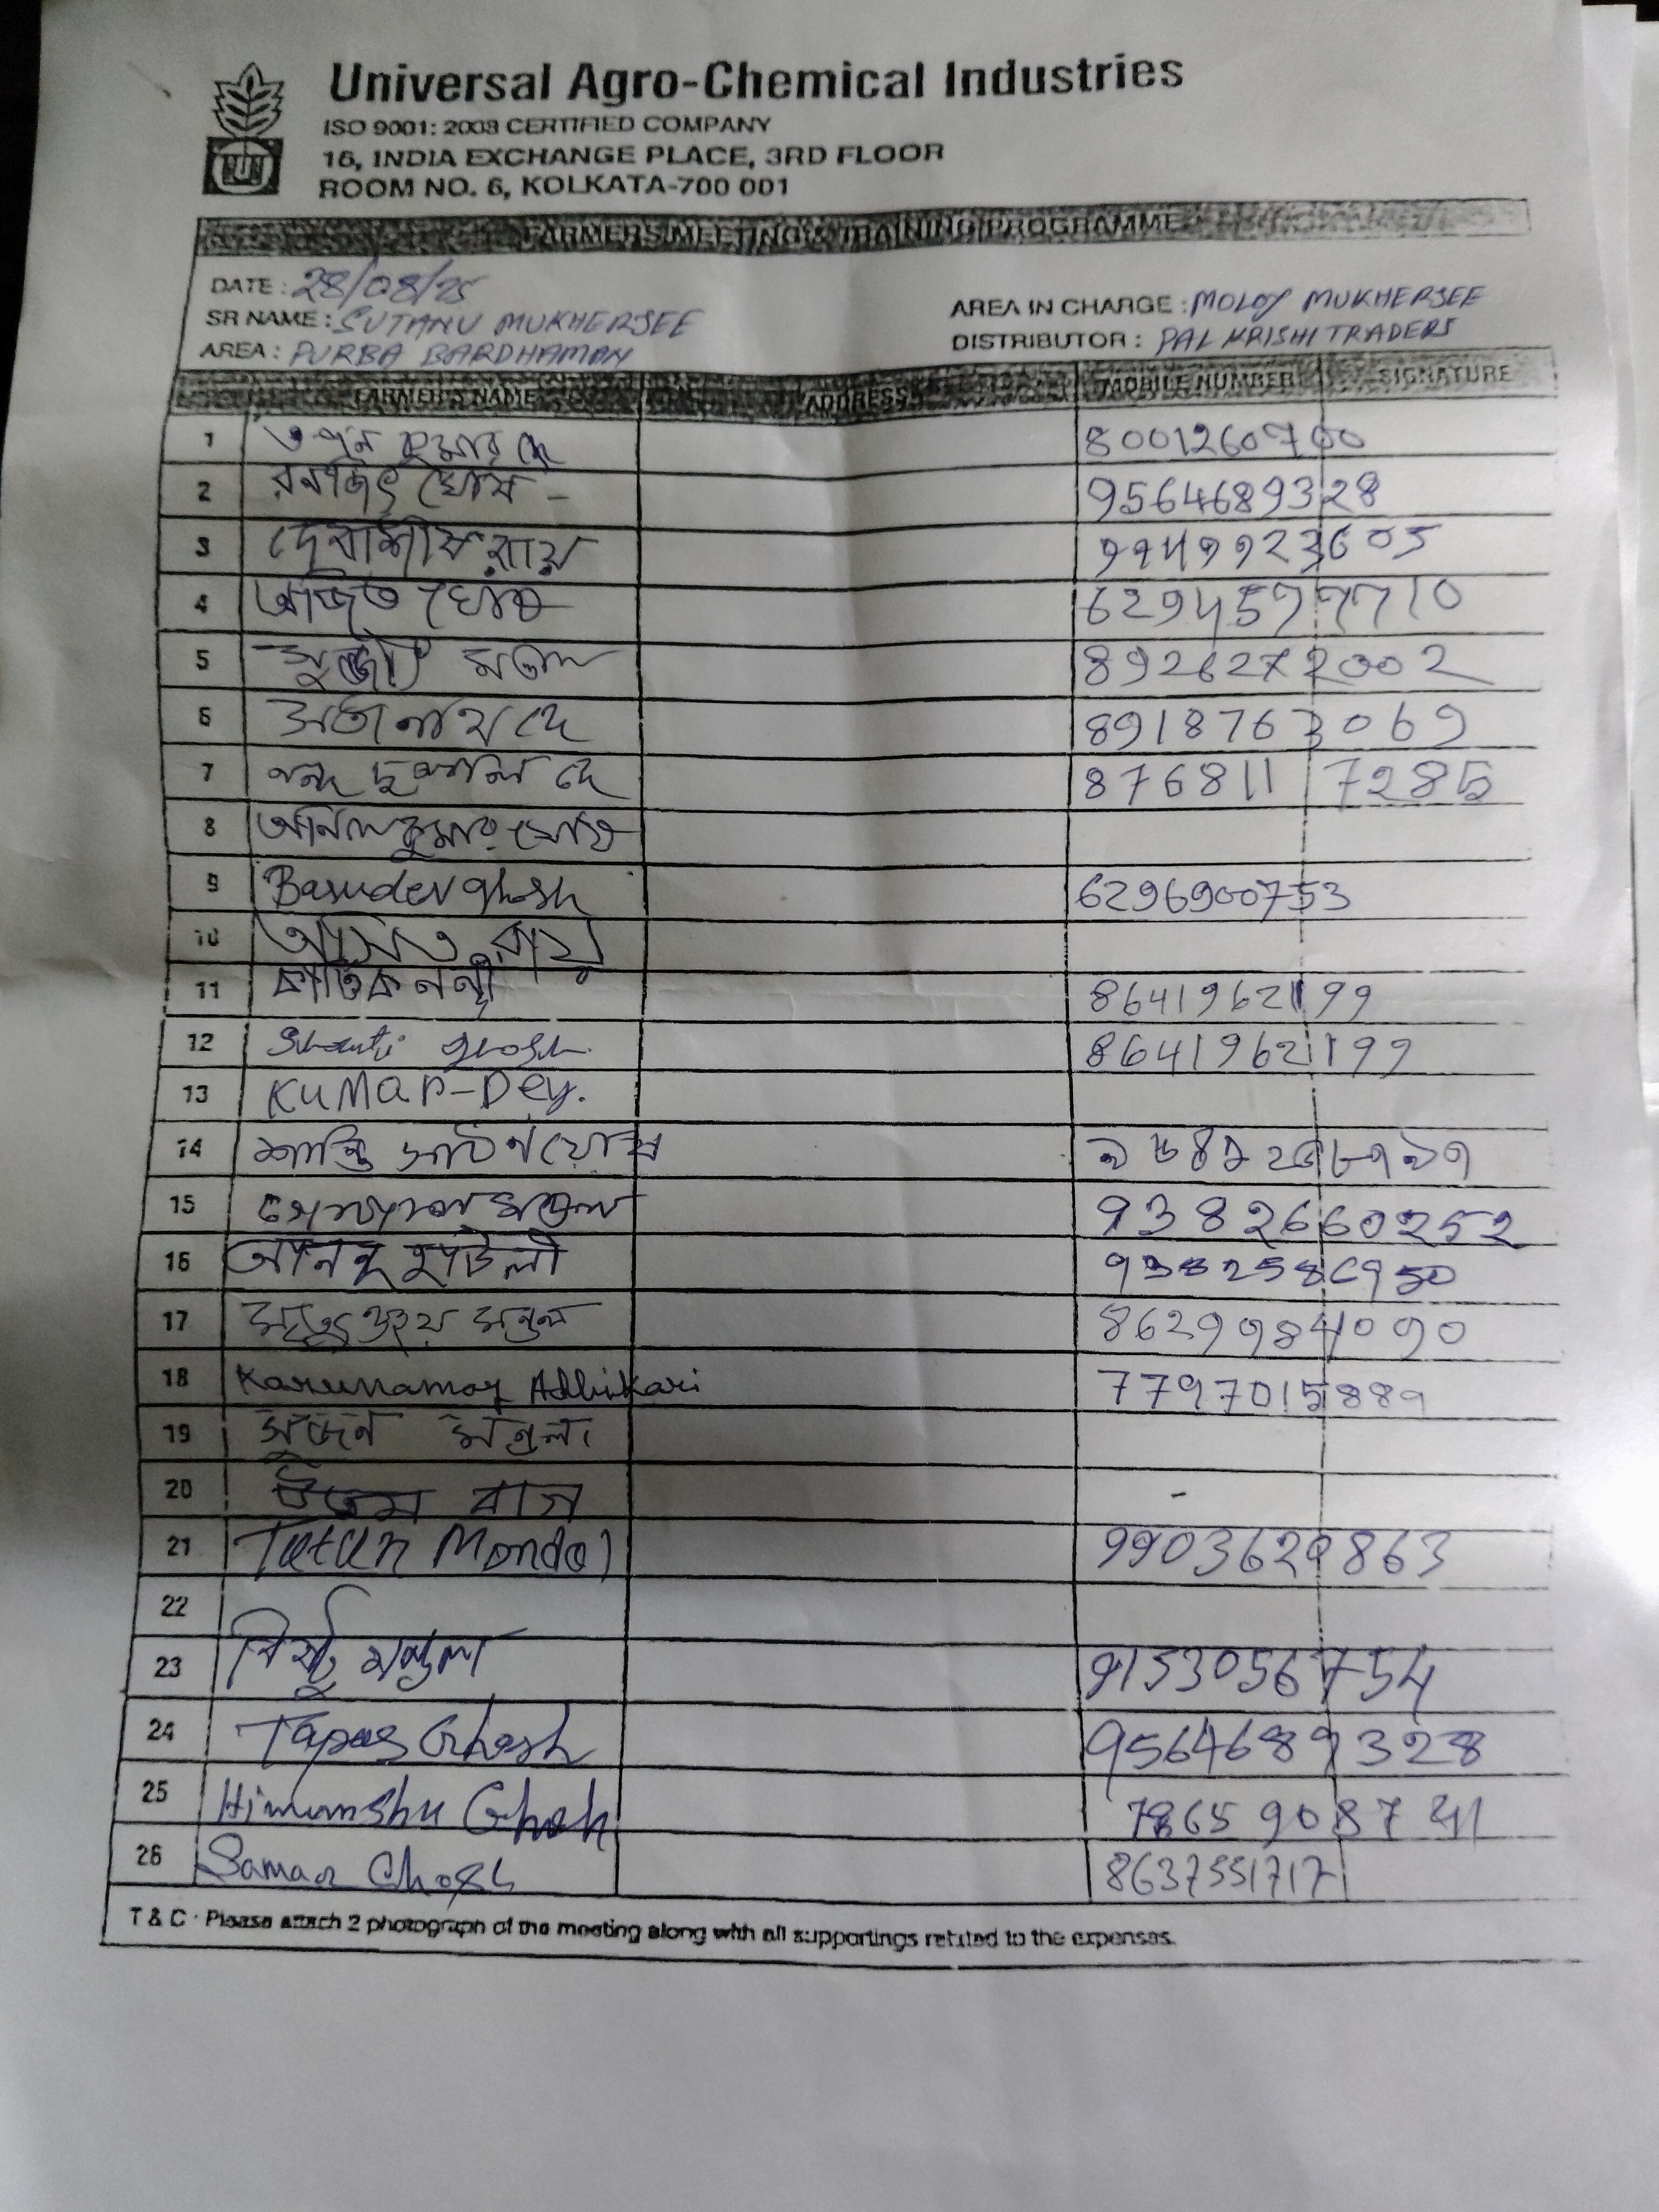 Universal Agro-Chemical Industries
ISO 9001: 2008 CERTIFIED COMPANY
16, INDIA EXCHANGE PLACE, 3RD FLOOR
ROOM NO. 6, KOLKATA-700 001
FARMERS MEETING & TRAINING PROGRAMME
DATE : 28/08/25
AREA IN CHARGE : MOLOY MUKHERJEE
SR NAME : SUTANU MUKHERJEE
DISTRIBUTOR : PAL KRISHI TRADERS
AREA : PURBA BARDHAMAN
FARMER'S NAME ADDRESS MOBILE NUMBER SIGNATURE
1 তপন কুমার দে 8001260700
2 রনজিৎ ঘোষ - 9564689328
3 দেবাশীষ রায়
4 অজিত ঘোষ 6294597710
5 মণ্ডল 8926272002
6 দে 8918763069
7 নন্দ দুলাল দে 8768117285
8 অনিল কুমার ঘোষ
9 Basudev Ghosh 6296900753
10 অসিত রায়
11 কার্তিক নন্দী 8641962199
12 Shanti Ghosh 8641962199
13 KUMAR-Dey.
14 শান্তি ঘোষ
15 মণ্ডল 9382660252
16 আনন্দ
17 মৃত্যুঞ্জয় মন্ডল 8629984090
18 Karunamoy Adhikari 7797015889
19 সুজন মন্ডল
20 উত্তম বাগ -
21 Tatan Mondal 9903620863
22
23 বিষ্টু মন্ডল 9153056754
24 Tapas Ghosh 9564689328
25 Himanshu Ghosh
26 Samar Ghosh 8637551717
T & C : Please attach 2 photograph of the meeting along with all supportings related to the expenses.